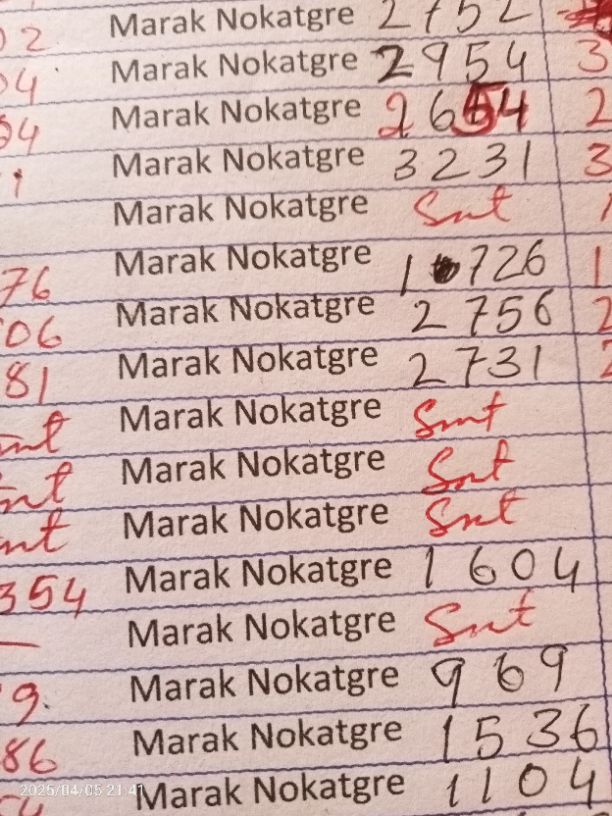 02 Marak Nokatgre 2752
04 Marak Nokatgre 2954 3
04 Marak Nokatgre 2654 2
1 Marak Nokatgre 3231 3
Marak Nokatgre Snt 1
76 Marak Nokatgre 1 726 1
06 Marak Nokatgre 2756 2
81 Marak Nokatgre 2731 2
mt Marak Nokatgre Smt
nt Marak Nokatgre Snt
nt Marak Nokatgre Snt
354 Marak Nokatgre 1604
— Marak Nokatgre Snt
9. Marak Nokatgre 969
86 Marak Nokatgre 1536
Marak Nokatgre 1104
2025/04/05 21:41